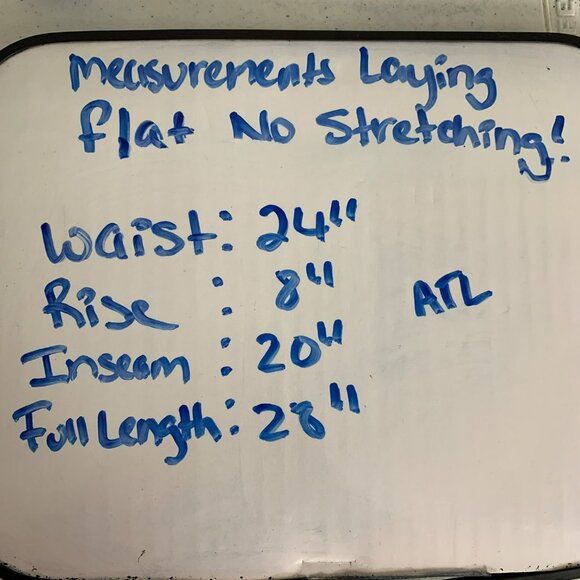 Measurements Laying
flat No Stretching!
Waist: 24"
Rise : 8"
ATL
Inseam : 20"
Full Length: 28"